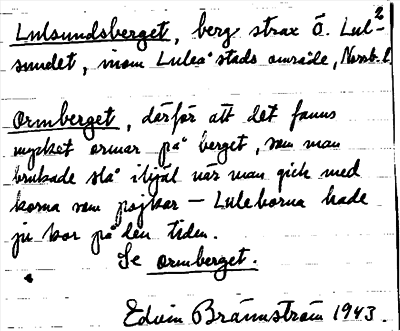 2
Lulsundsberget, berg strax Ö. Lul-
sundet, inom Luleå stads område, Norrb. l.
Ormberget, därför att det fanns
mycket ormar på berget, som man
brukade slå ihjäl när man gick med
korna som pojkar – Luleborna hade
ju kor på den tiden.
Se ormberget.
Edvin Brännström 1943.